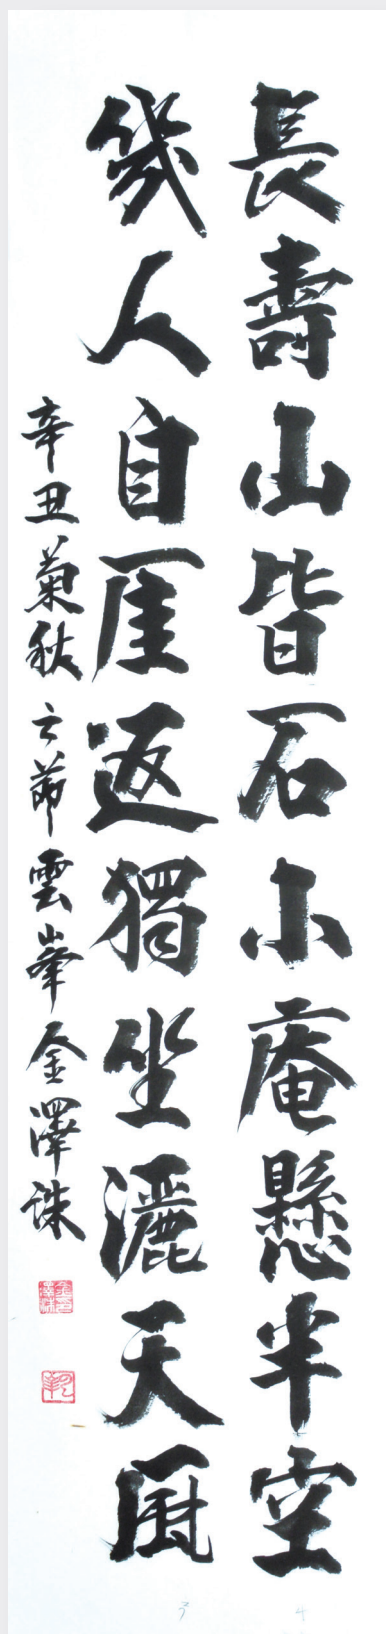 長壽山皆石小庵懸半空
幾人自厓返獨坐灑天風
辛丑菊秋 云節雲峯金澤洙